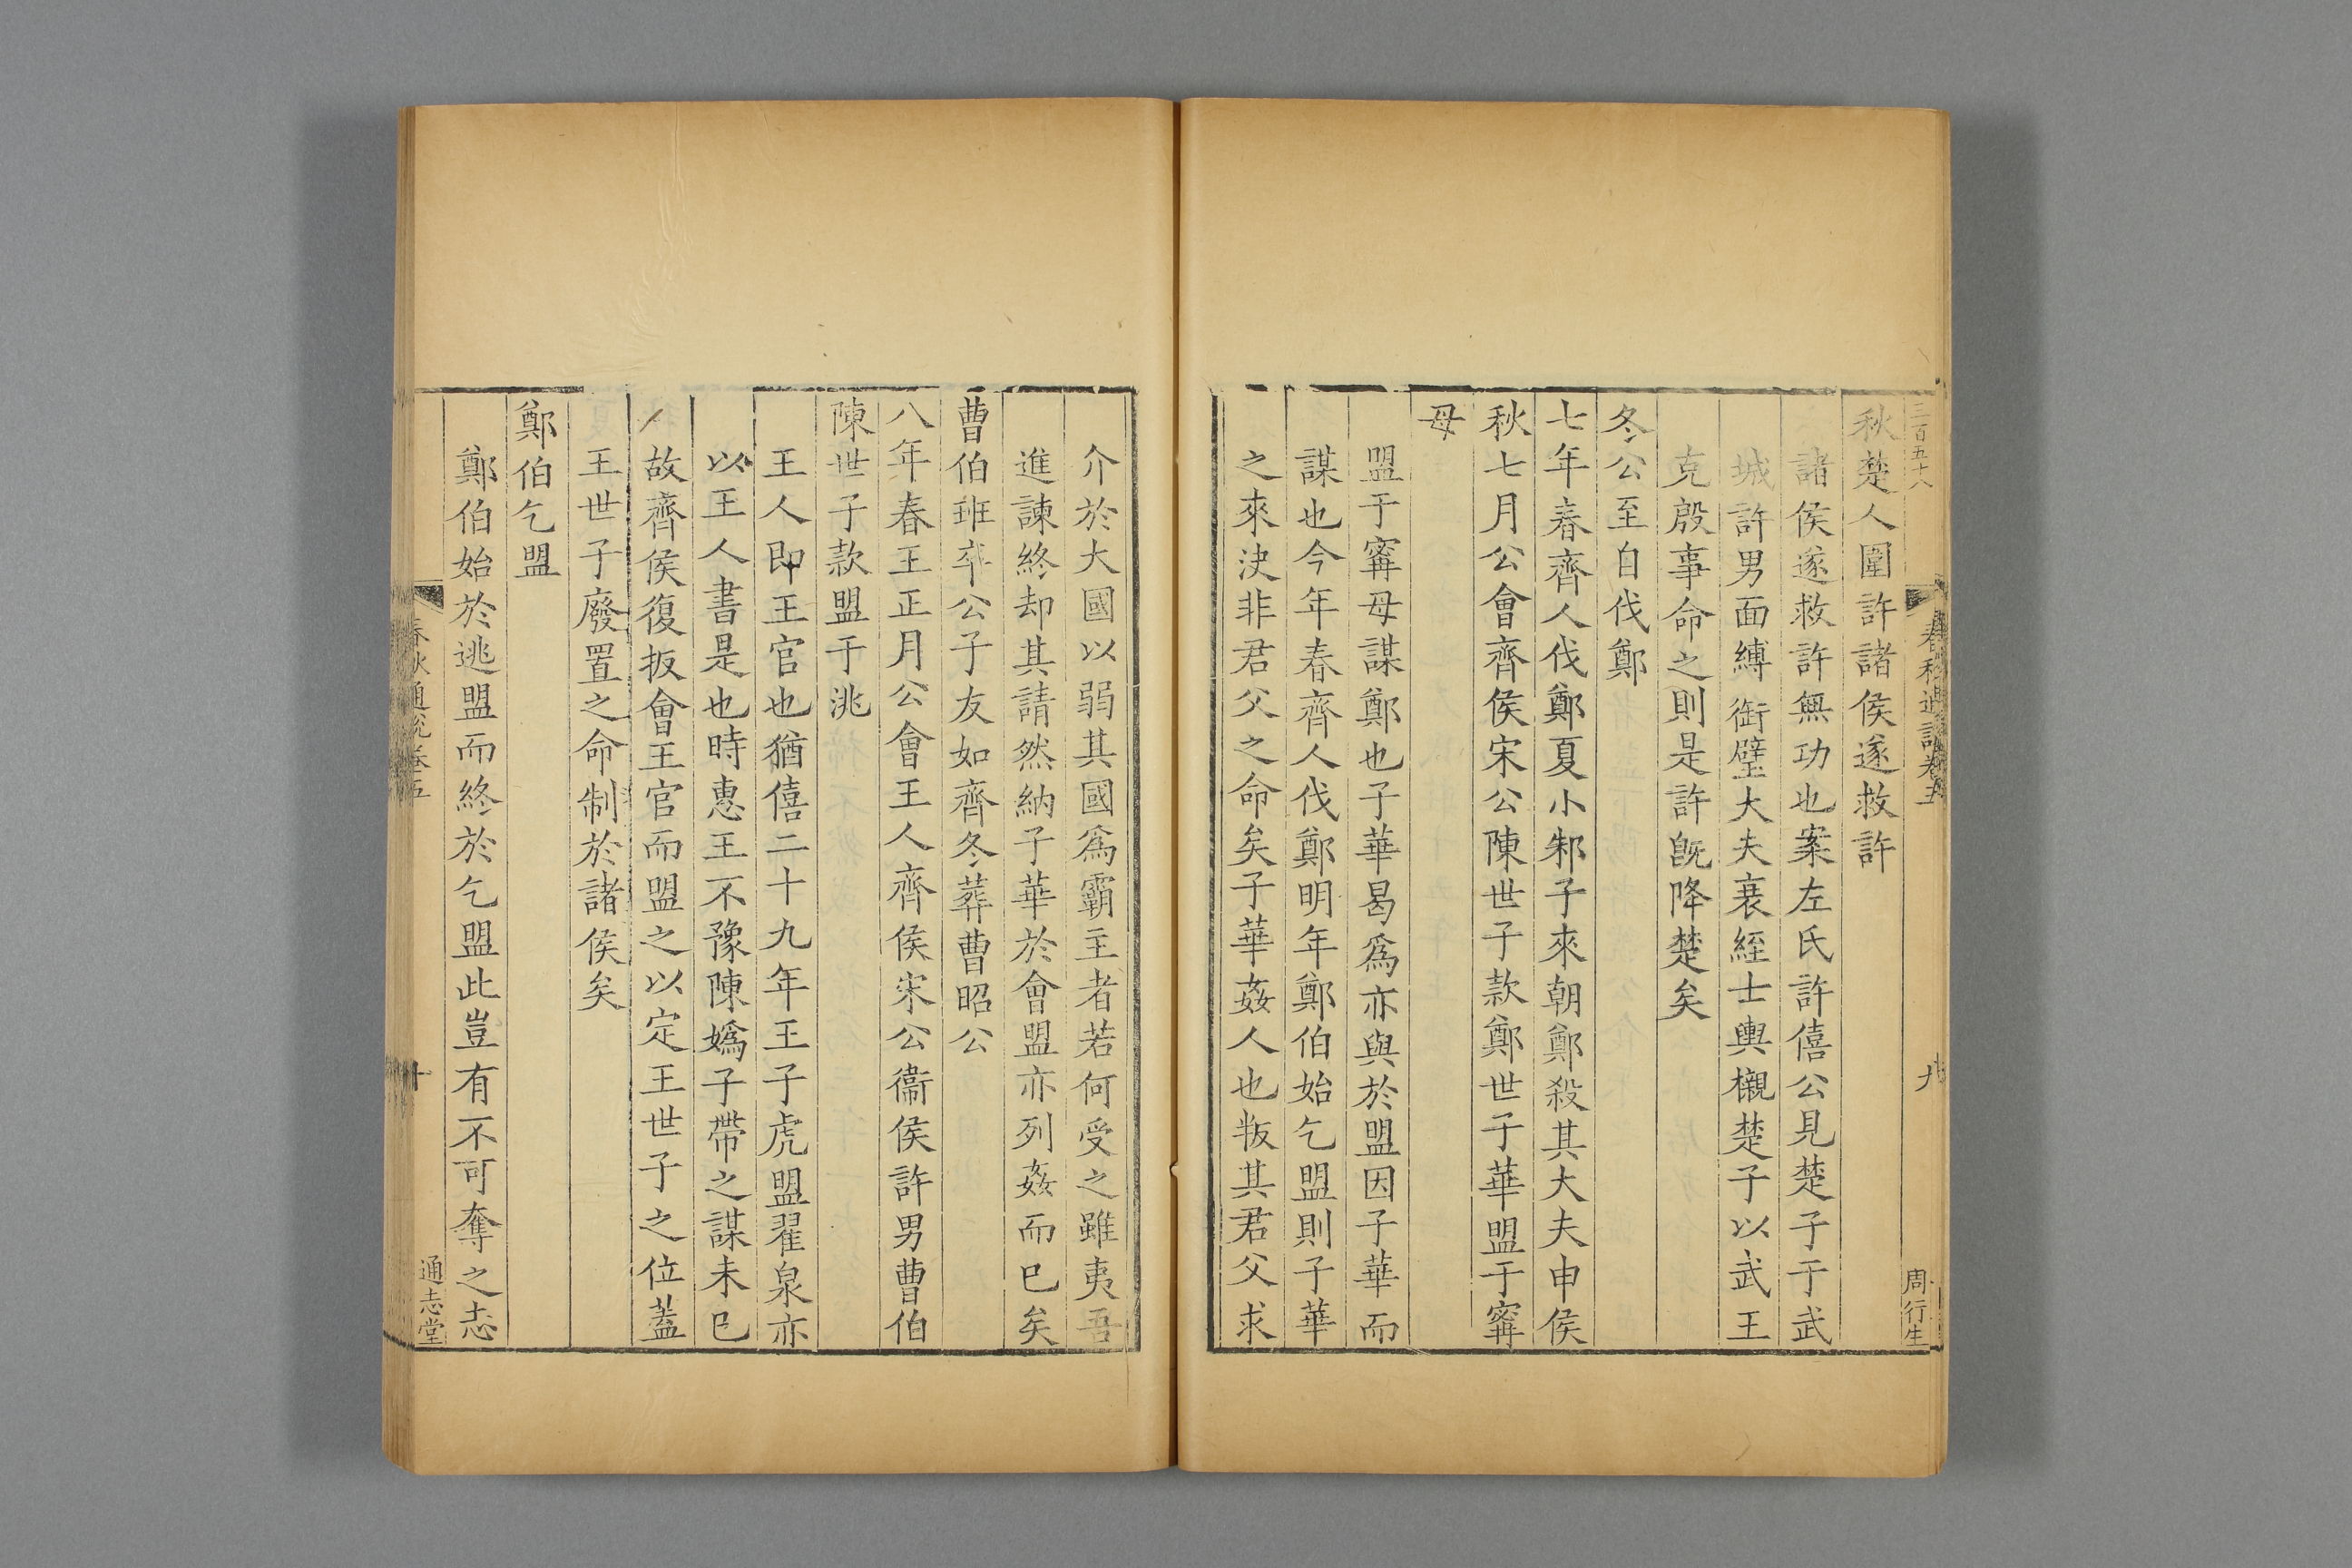 三百五十八
春秋通說卷五
九
周行生
秋楚人圍許諸侯遂救許
諸侯遂救許無功也案左氏許僖公見楚子于武
城許男面縛銜璧大夫衰絰士輿櫬楚子以武王
克殷事命之則是許旣降楚矣
冬公至自伐鄭
七年春齊人伐鄭夏小邾子來朝鄭殺其大夫申侯
秋七月公會齊侯宋公陳世子款鄭世子華盟于寗
母
盟于寗母謀鄭也子華曷爲亦與於盟因子華而
謀也今年春齊人伐鄭明年鄭伯始乞盟則子華
之來決非君父之命矣子華姦人也叛其君父求
介於大國以弱其國爲霸主者若何受之雖夷吾
進諫終却其請然納子華於會盟亦列姦而已矣
曹伯班卒公子友如齊冬葬曹昭公
八年春王正月公會王人齊侯宋公衞侯許男曹伯
陳世子款盟于洮
王人即王官也猶僖二十九年王子虎盟翟泉亦
以王人書是也時惠王不豫陳嬀子帶之謀未已
故齊侯復扳會王官而盟之以定王世子之位蓋
王世子廢置之命制於諸侯矣
鄭伯乞盟
鄭伯始於逃盟而終於乞盟此豈有不可奪之志
春秋通說卷五
十
通志堂